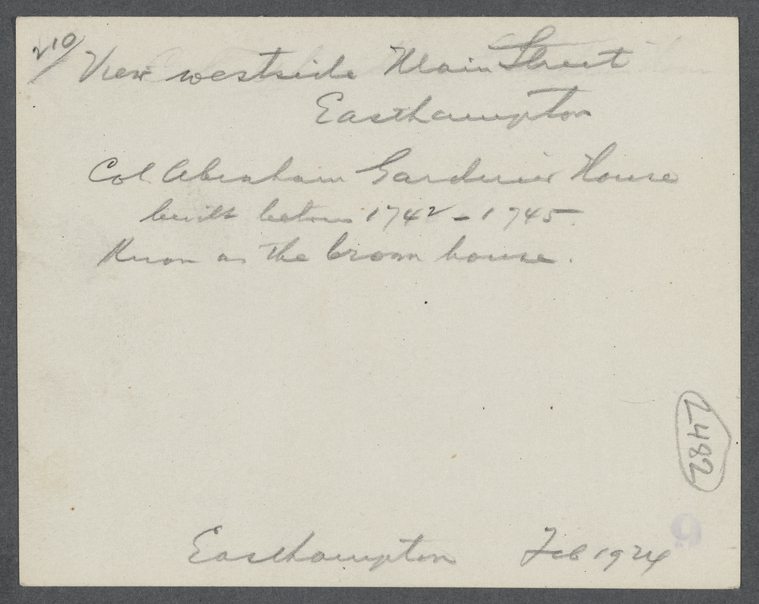 210/ View westside Main Street
Easthampton
Col Abraham Gardiner House
built betwn 1742 - 1745
Know as the brown house.
2482
9
Easthampton Feb 1924